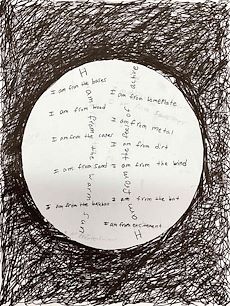 I am from the bases
I am from homeplate
I am from wood
I am from metal
I am from the
I am from dirt
I am from sand
I am from the wind
I am from the
I am from the bat
I am from excitement
I am from the warm sun
I am from people active